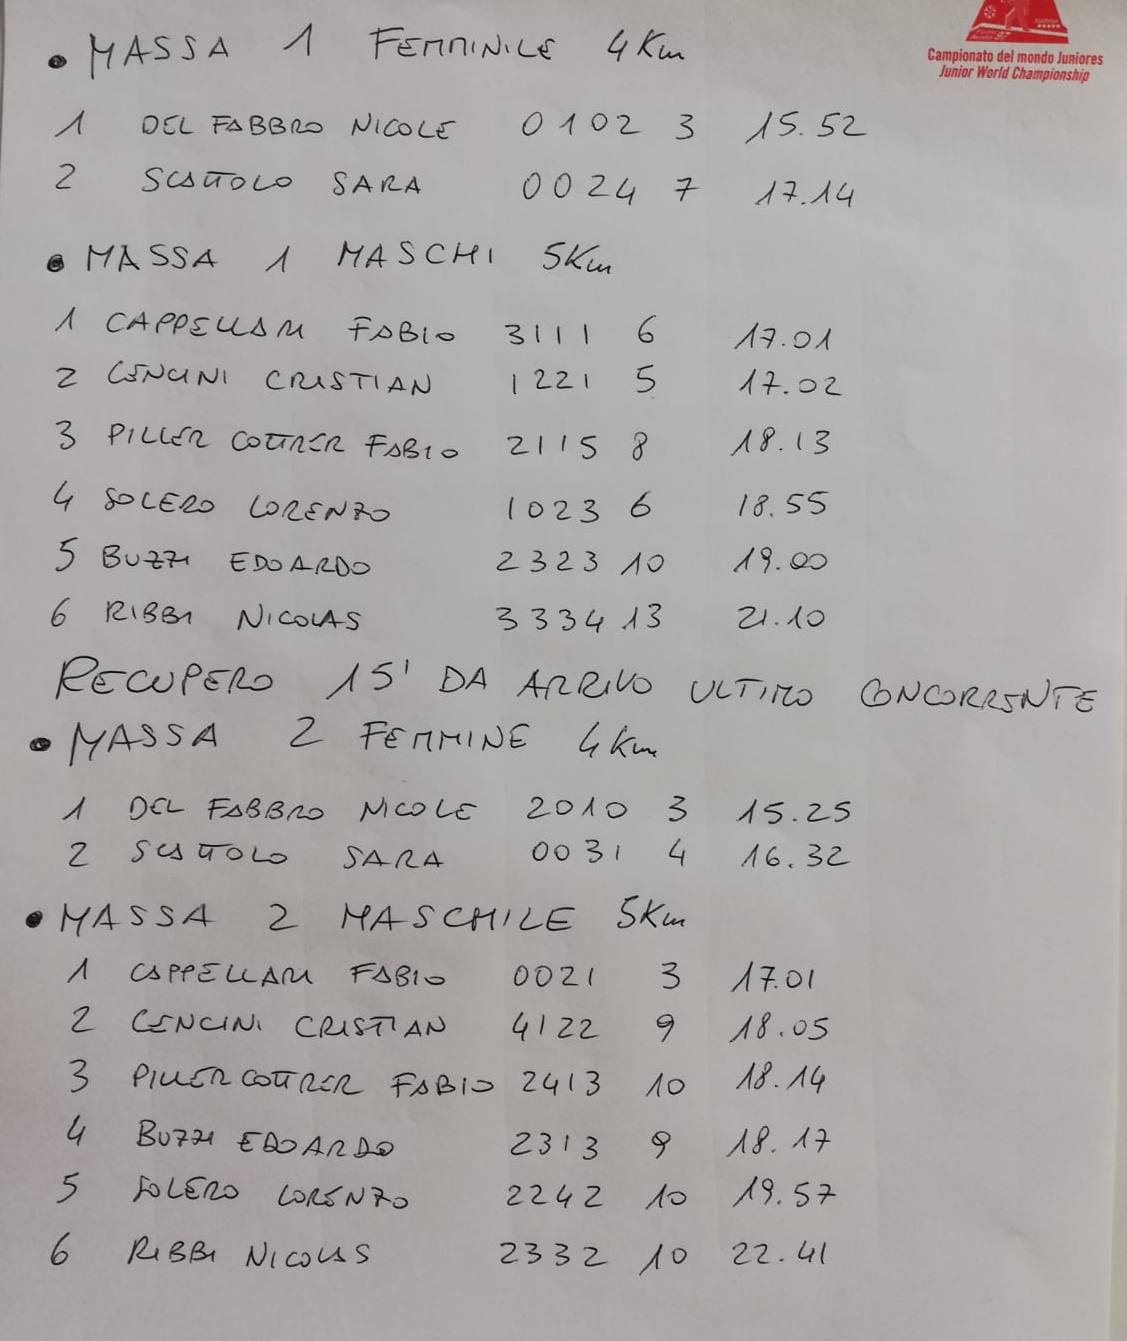 Campionato del mondo Juniores
Junior World Championship
• MASSA 1 FEMMINILE 4Km
1 DEL FABBRO NICOLE 0102 3 15.52
2 SCATTOLO SARA 0024 7 17.14
• MASSA 1 MASCHI 5Km
1 CAPPELLARI FABIO 3111 6 17.01
2 CENCINI CRISTIAN 1221 5 17.02
3 PILLER COTTRER FABIO 2115 8 18.13
4 SOLERO LORENZO 1023 6 18.55
5 BUZZI EDOARDO 2323 10 19.00
6 RIBBI NICOLAS 3334 13 21.10
RECUPERO 15' DA ARRIVO ULTIMO CONCORRENTE
• MASSA 2 FEMMINE 4Km
1 DEL FABBRO NICOLE 2010 3 15.25
2 SCATTOLO SARA 0031 4 16.32
• MASSA 2 MASCHILE 5Km
1 CAPPELLARI FABIO 0021 3 17.01
2 CENCINI CRISTIAN 4122 9 18.05
3 PILLER COTTRER FABIO 2413 10 18.14
4 BUZZI EDOARDO 2313 9 18.17
5 SOLERO LORENZO 2242 10 19.57
6 RIBBI NICOLAS 2332 10 22.41